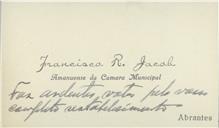 Francisco R. Jacob
Amanuense da Camara Municipal
Faz ardentes votos pelo vosso
completo restabelecimento
Abrantes